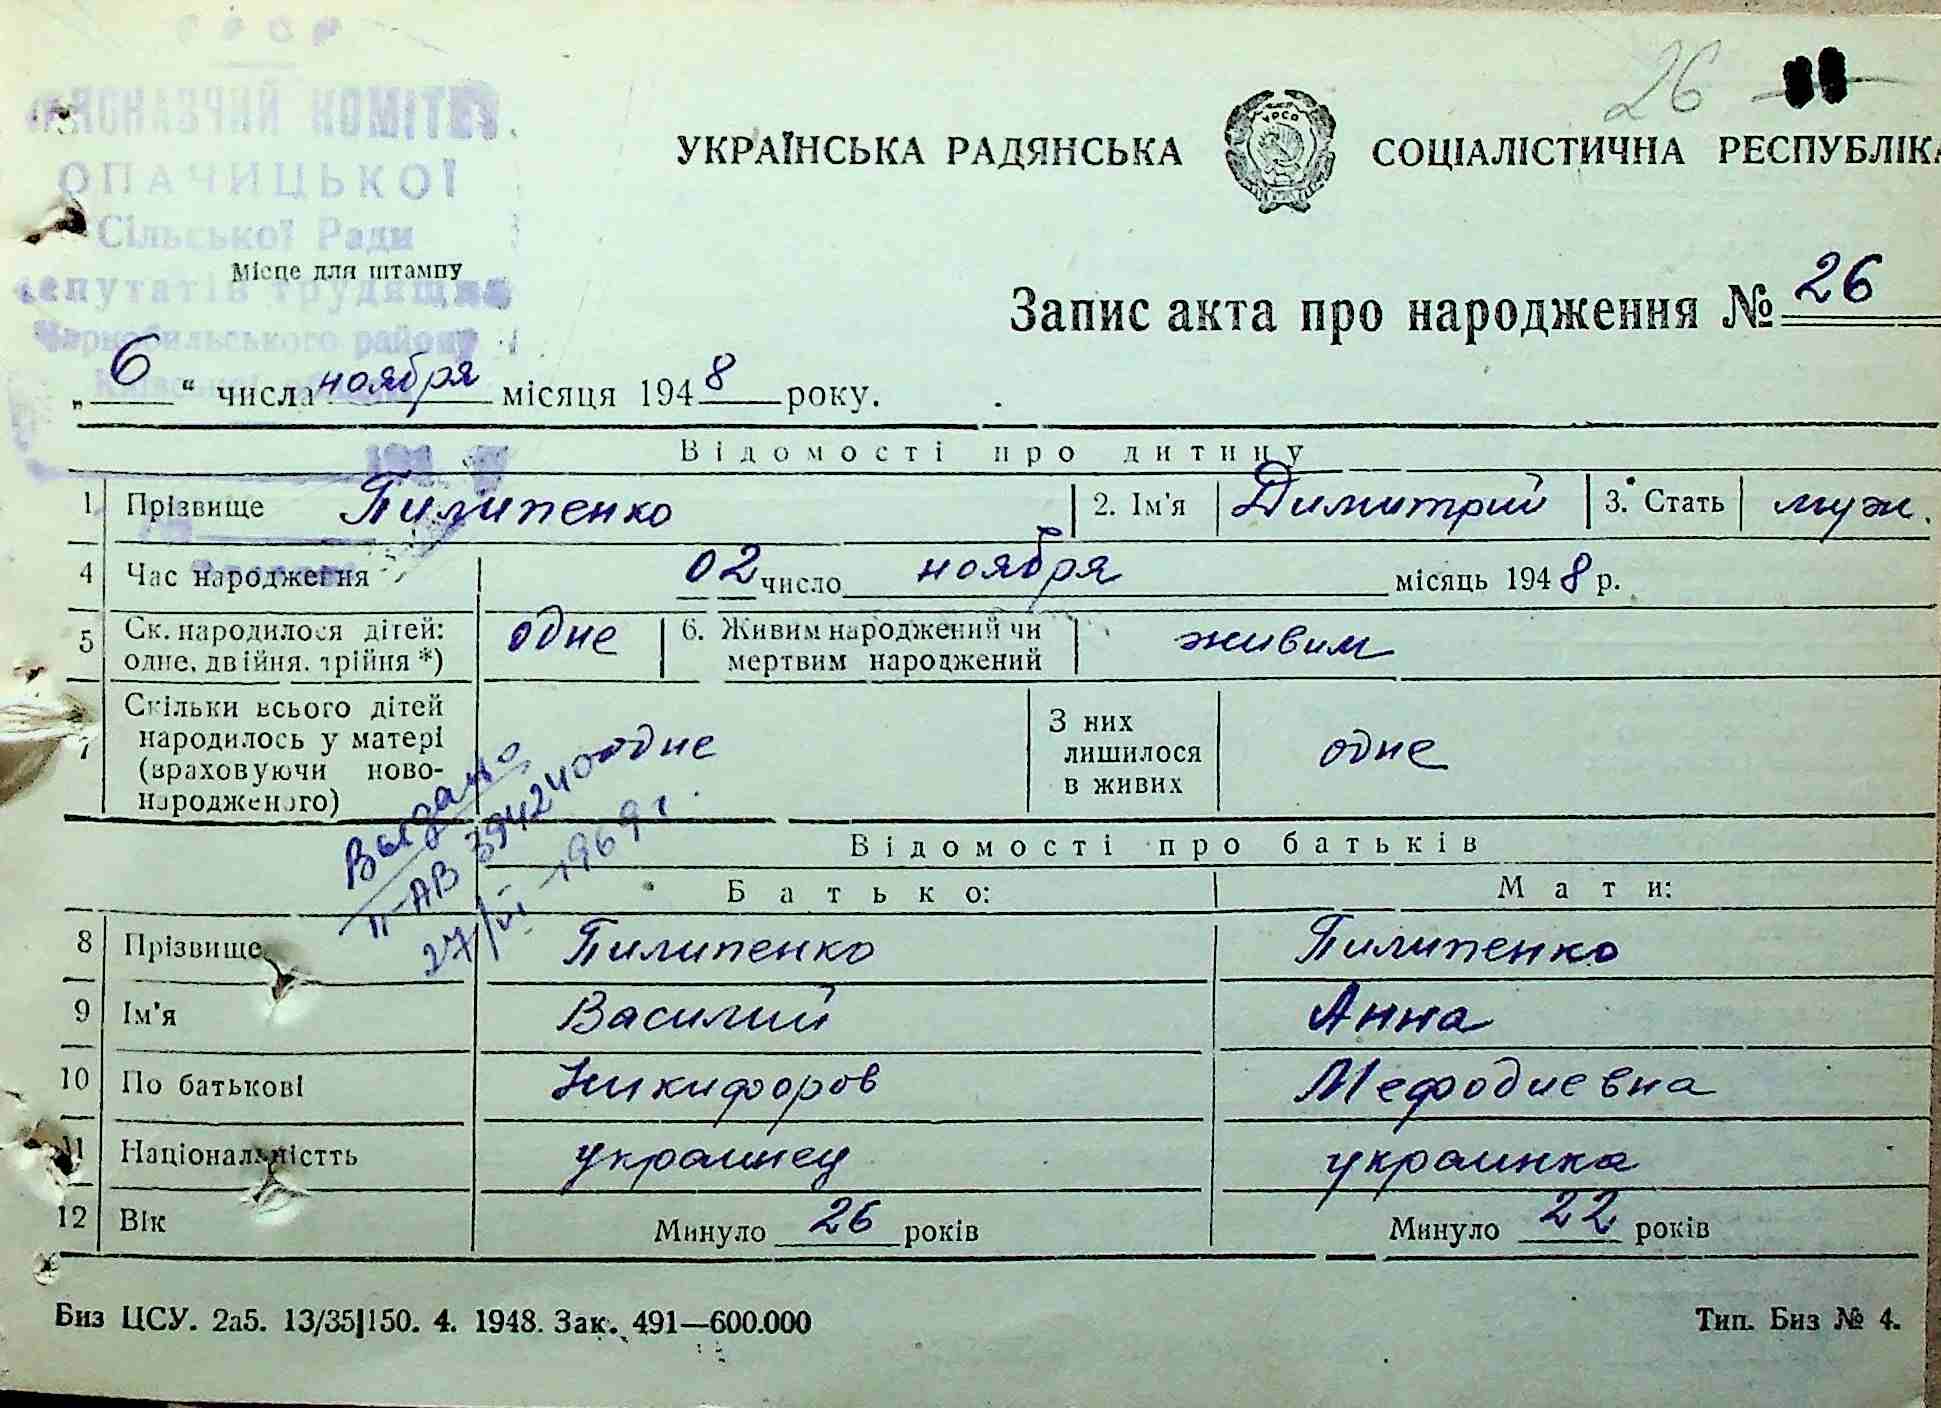 26
ВИКОНАВЧИЙ КОМІТЕТ
ОПАЧИЦЬКОЇ
Сільської Ради
депутатів трудящих
Чорнобильського району
УКРАЇНСЬКА РАДЯНСЬКА СОЦІАЛІСТИЧНА РЕСПУБЛІКА
УРСР
Місце для штампу
Запис акта про народження № 26
„ 6 “ числа ноября місяця 1948 року.
Відомості про дитину
1 Прізвище Пилипенко 2. Ім'я Димитрий 3. Стать муж.
4 Час народження 02 число ноября місяць 1948 р.
5 Ск. народилося дітей: одне 6. Живим народжений чи живим
одне, двійня, трійня *) мертвим народжений
7 Скільки всього дітей
народилось у матері
(враховуючи ново-
народженого) одне
З них
лишилося
в живих одне
Выдано
II-АВ 394240
27/VI 1969 г.
Відомості про батьків
Батько: Мати:
8 Прізвище Пилипенко Пилипенко
9 Ім'я Василий Анна
10 По батькові Никифоров Мефодиевна
11 Національністть украинец украинка
12 Вік Минуло 26 років Минуло 22 років
Биз ЦСУ. 2а5. 13/35|150. 4. 1948. Зак. 491—600.000 Тип. Биз № 4.